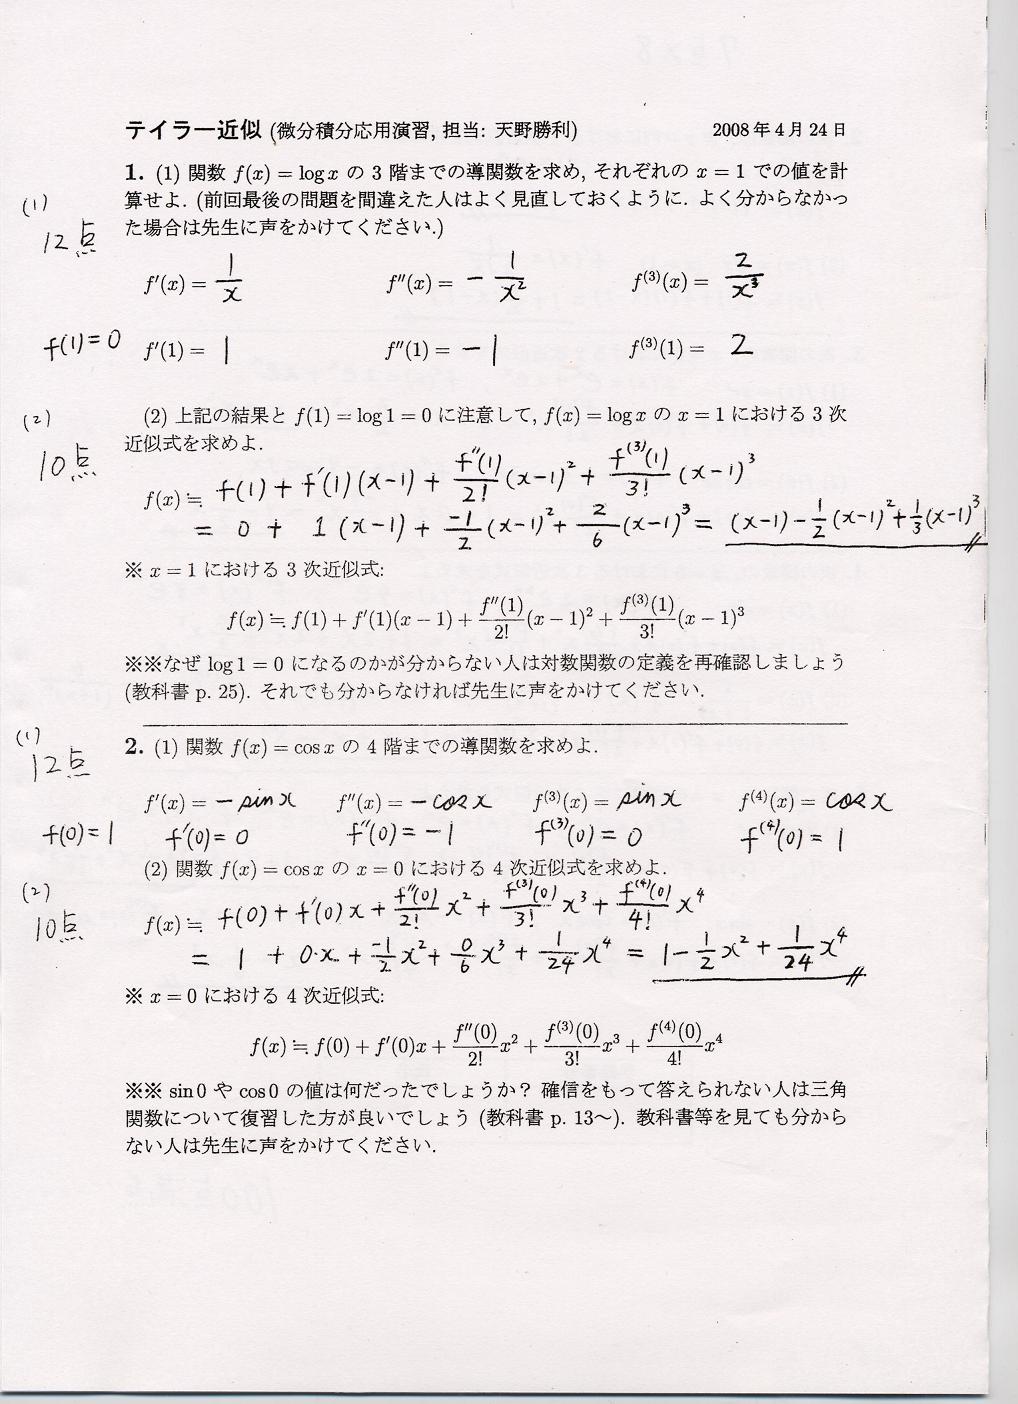 テイラー近似 (微分積分応用演習, 担当: 天野勝利) 2008年4月24日
1. (1) 関数 f(x) = log x の 3 階までの導関数を求め, それぞれの x = 1 での値を計
算せよ. (前回最後の問題を間違えた人はよく見直しておくように. よく分からなかっ
た場合は先生に声をかけてください.)
(1)
12点
f′(x) = 1/x f″(x) = − 1/x² f⁽³⁾(x) = 2/x³
f(1)=0 f′(1) = 1 f″(1) = −1 f⁽³⁾(1) = 2
(2) 上記の結果と f(1) = log 1 = 0 に注意して, f(x) = log x の x = 1 における 3 次
近似式を求めよ.
(2)
10点
f(x) ≒ f(1) + f′(1)(x−1) + f″(1)/2! (x−1)² + f⁽³⁾(1)/3! (x−1)³
= 0 + 1(x−1) + −1/2 (x−1)² + 2/6 (x−1)³ = (x−1) − 1/2 (x−1)² + 1/3 (x−1)³
※ x = 1 における 3 次近似式:
f(x) ≒ f(1) + f′(1)(x − 1) + f″(1)/2! (x − 1)² + f⁽³⁾(1)/3! (x − 1)³
※※なぜ log 1 = 0 になるのかが分からない人は対数関数の定義を再確認しましょう
(教科書 p. 25). それでも分からなければ先生に声をかけてください.
(1)
12点
2. (1) 関数 f(x) = cos x の 4 階までの導関数を求めよ.
f′(x) = −sin x f″(x) = −cos x f⁽³⁾(x) = sin x f⁽⁴⁾(x) = cos x
f(0)=1 f′(0)=0 f″(0)=−1 f⁽³⁾(0)=0 f⁽⁴⁾(0)=1
(2) 関数 f(x) = cos x の x = 0 における 4 次近似式を求めよ.
(2)
10点
f(x) ≒ f(0) + f′(0)x + f″(0)/2! x² + f⁽³⁾(0)/3! x³ + f⁽⁴⁾(0)/4! x⁴
= 1 + 0·x + −1/2 x² + 0/6 x³ + 1/24 x⁴ = 1 − 1/2 x² + 1/24 x⁴
※ x = 0 における 4 次近似式:
f(x) ≒ f(0) + f′(0)x + f″(0)/2! x² + f⁽³⁾(0)/3! x³ + f⁽⁴⁾(0)/4! x⁴
※※ sin 0 や cos 0 の値は何だったでしょうか? 確信をもって答えられない人は三角
関数について復習した方が良いでしょう (教科書 p. 13〜). 教科書等を見ても分から
ない人は先生に声をかけてください.